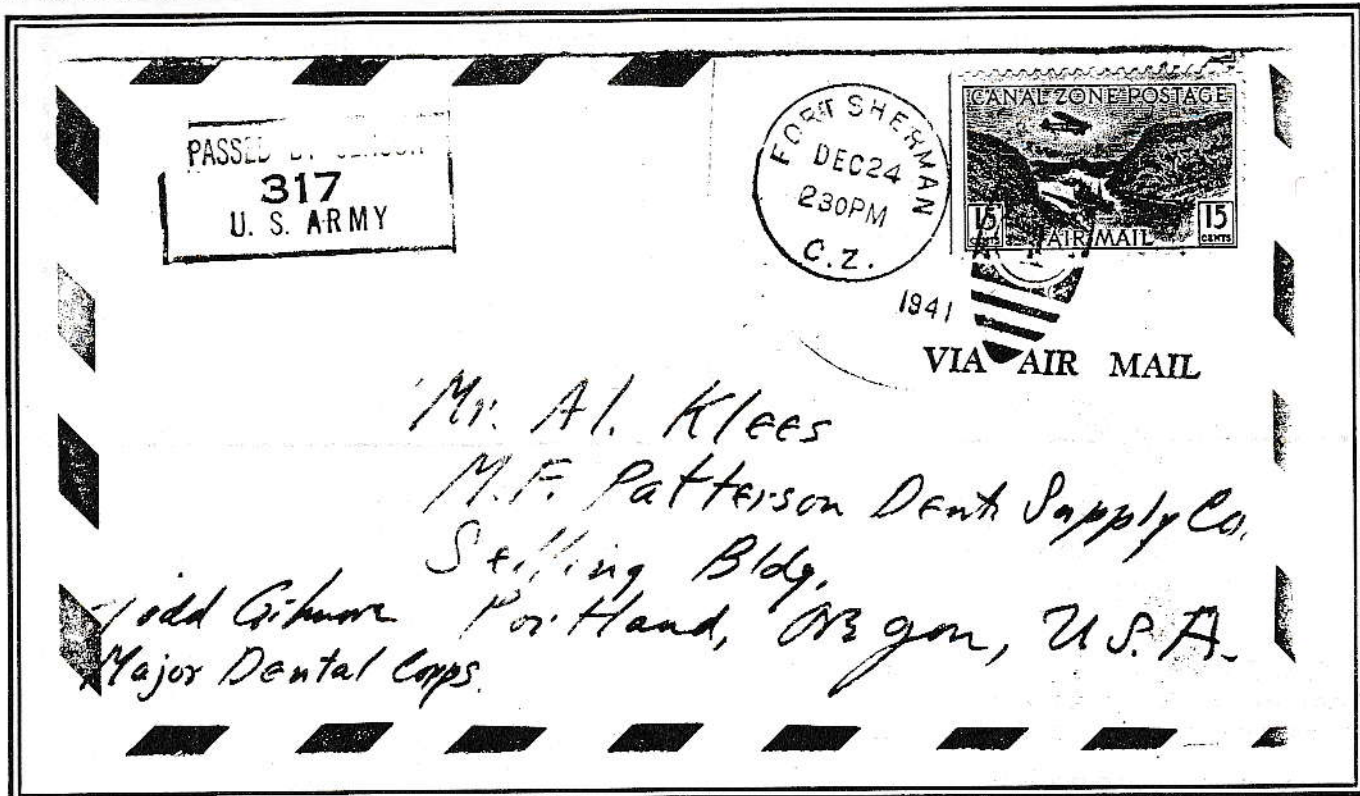 PASSED BY CENSOR
317
U. S. ARMY
FORT SHERMAN
DEC 24
230PM
C.Z.
1941
CANAL ZONE POSTAGE
15 CENTS
AIR MAIL
15 CENTS
VIA AIR MAIL
Mr. Al. Klees
M.F. Patterson Dent. Supply Co.
Selling Bldg.
Portland, Oregon, U.S.A.
Todd Gilmore
Major Dental Corps.